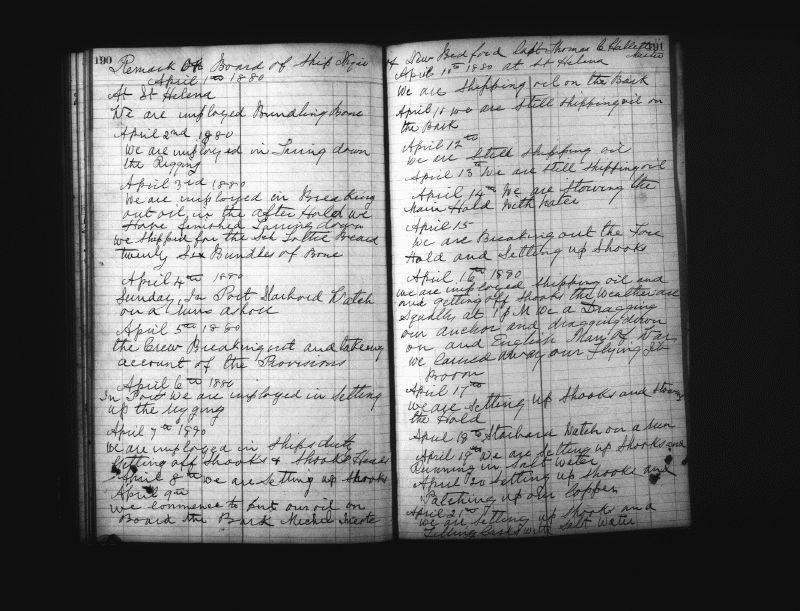 190
Remark On Board of Ship Niger
April 1st 1880
At St Helena
We are imployed Bundling Bone
April 2nd 1880
We are imployed in Taring down
the Rigging
April 3rd 1880
We are imployed in Breaking
out oil in the after Hold We
Have finished Taring down
We shipped for the Sch Lottie Beard
twenty Six Bundles of Bone
April 4th 1880
Sunday, In Port Starbord Watch
on a Liberty ashore
April 5th 1880
the Crew Breaking out and takeing
account of the Provisions
April 6th 1880
In Port We are imployed in Setting
up the rigging
April 7th 1880
We are imployed in Ships duty
Getting off Shooks & Shook Heads
April 8th we are setting up Shooks
April 9th
we commence to put our oil on
Board the Bark
191
of New Bedford Capt Thomas C Hallett
Master
April 10th 1880 at St Helena
We are shipping oil on the Bark
April 11 we are Still shipping oil on
the Bark
April 12th
We are Still shipping oil
April 13th We are still shipping oil
April 14th We are Stowing the
Main Hold With Water
April 15
We are Breaking out the Fore
Hold and Setting up Shooks
April 16th 1880
we are imployed Shipping oil and
and getting off Shooks the Weather
Squally, at 1 P M We a Dragging
our anchor and dragging down
on and English Man Of War
we carried away our Flying Jib
Booom
April 17th
We are Setting up Shooks and Stowing
the Hold
April 18th Starbard Watch on a
April 19th We are Setting up Shooks and
Running in Salt Water
April 20 Setting up Shooks and
Patching up our Copper
April 21st
We are Setting up Shooks and
Filling Casks with Salt Water